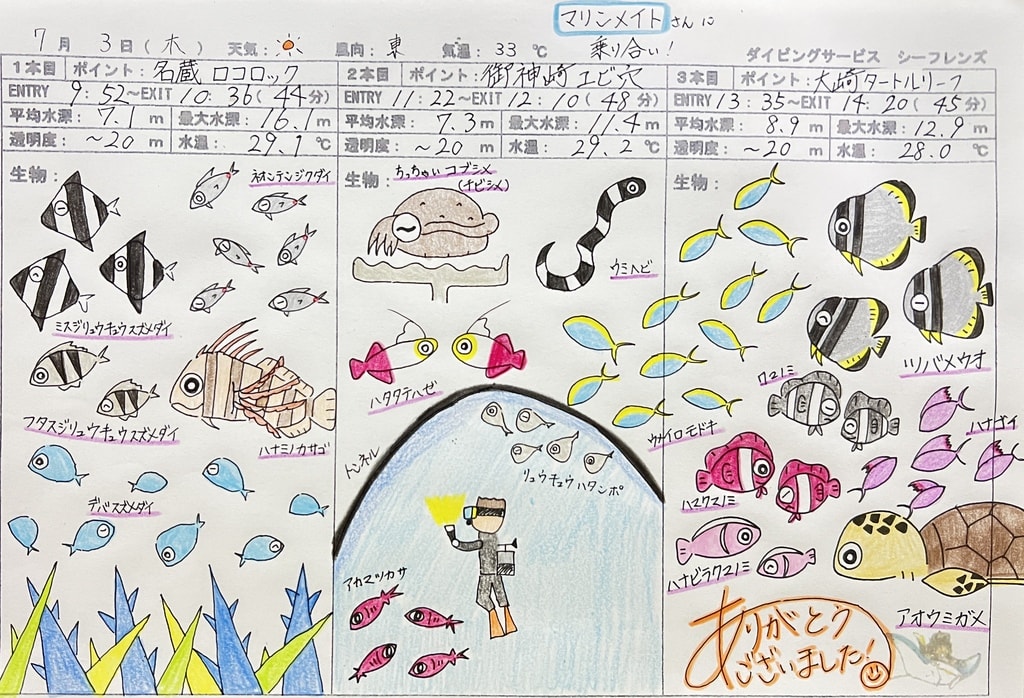 マリンメイトさんに
乗り合い!
7月 3日(木) 天気: 風向:東 気温:33℃
ダイビングサービス シーフレンズ
1本目 ポイント:名蔵 ロコロック
ENTRY 9:52~EXIT 10:36(44分)
平均水深:7.1m 最大水深:16.1m
透明度:~20m 水温:29.1℃
生物:
ネオンテンジクダイ
ミスジリュウキュウスズメダイ
フタスジリュウキュウスズメダイ
ハナミノカサゴ
デバスズメダイ
2本目 ポイント:御神崎エビ穴
ENTRY 11:22~EXIT 12:10(48分)
平均水深:7.3m 最大水深:11.4m
透明度:~20m 水温:29.2℃
生物:
ちっちゃいコブシメ
(チビシメ)
ウミヘビ
ハタタテハゼ
トンネル
リュウキュウハタンポ
アカマツカサ
3本目 ポイント:大崎タートルリーフ
ENTRY 13:35~EXIT 14:20(45分)
平均水深:8.9m 最大水深:12.9m
透明度:~20m 水温:28.0℃
生物:
ツバメウオ
クマノミ
ウメイロモドキ
ハナゴイ
ハマクマノミ
ハナビラクマノミ
アオウミガメ
ありがとう
ございました!